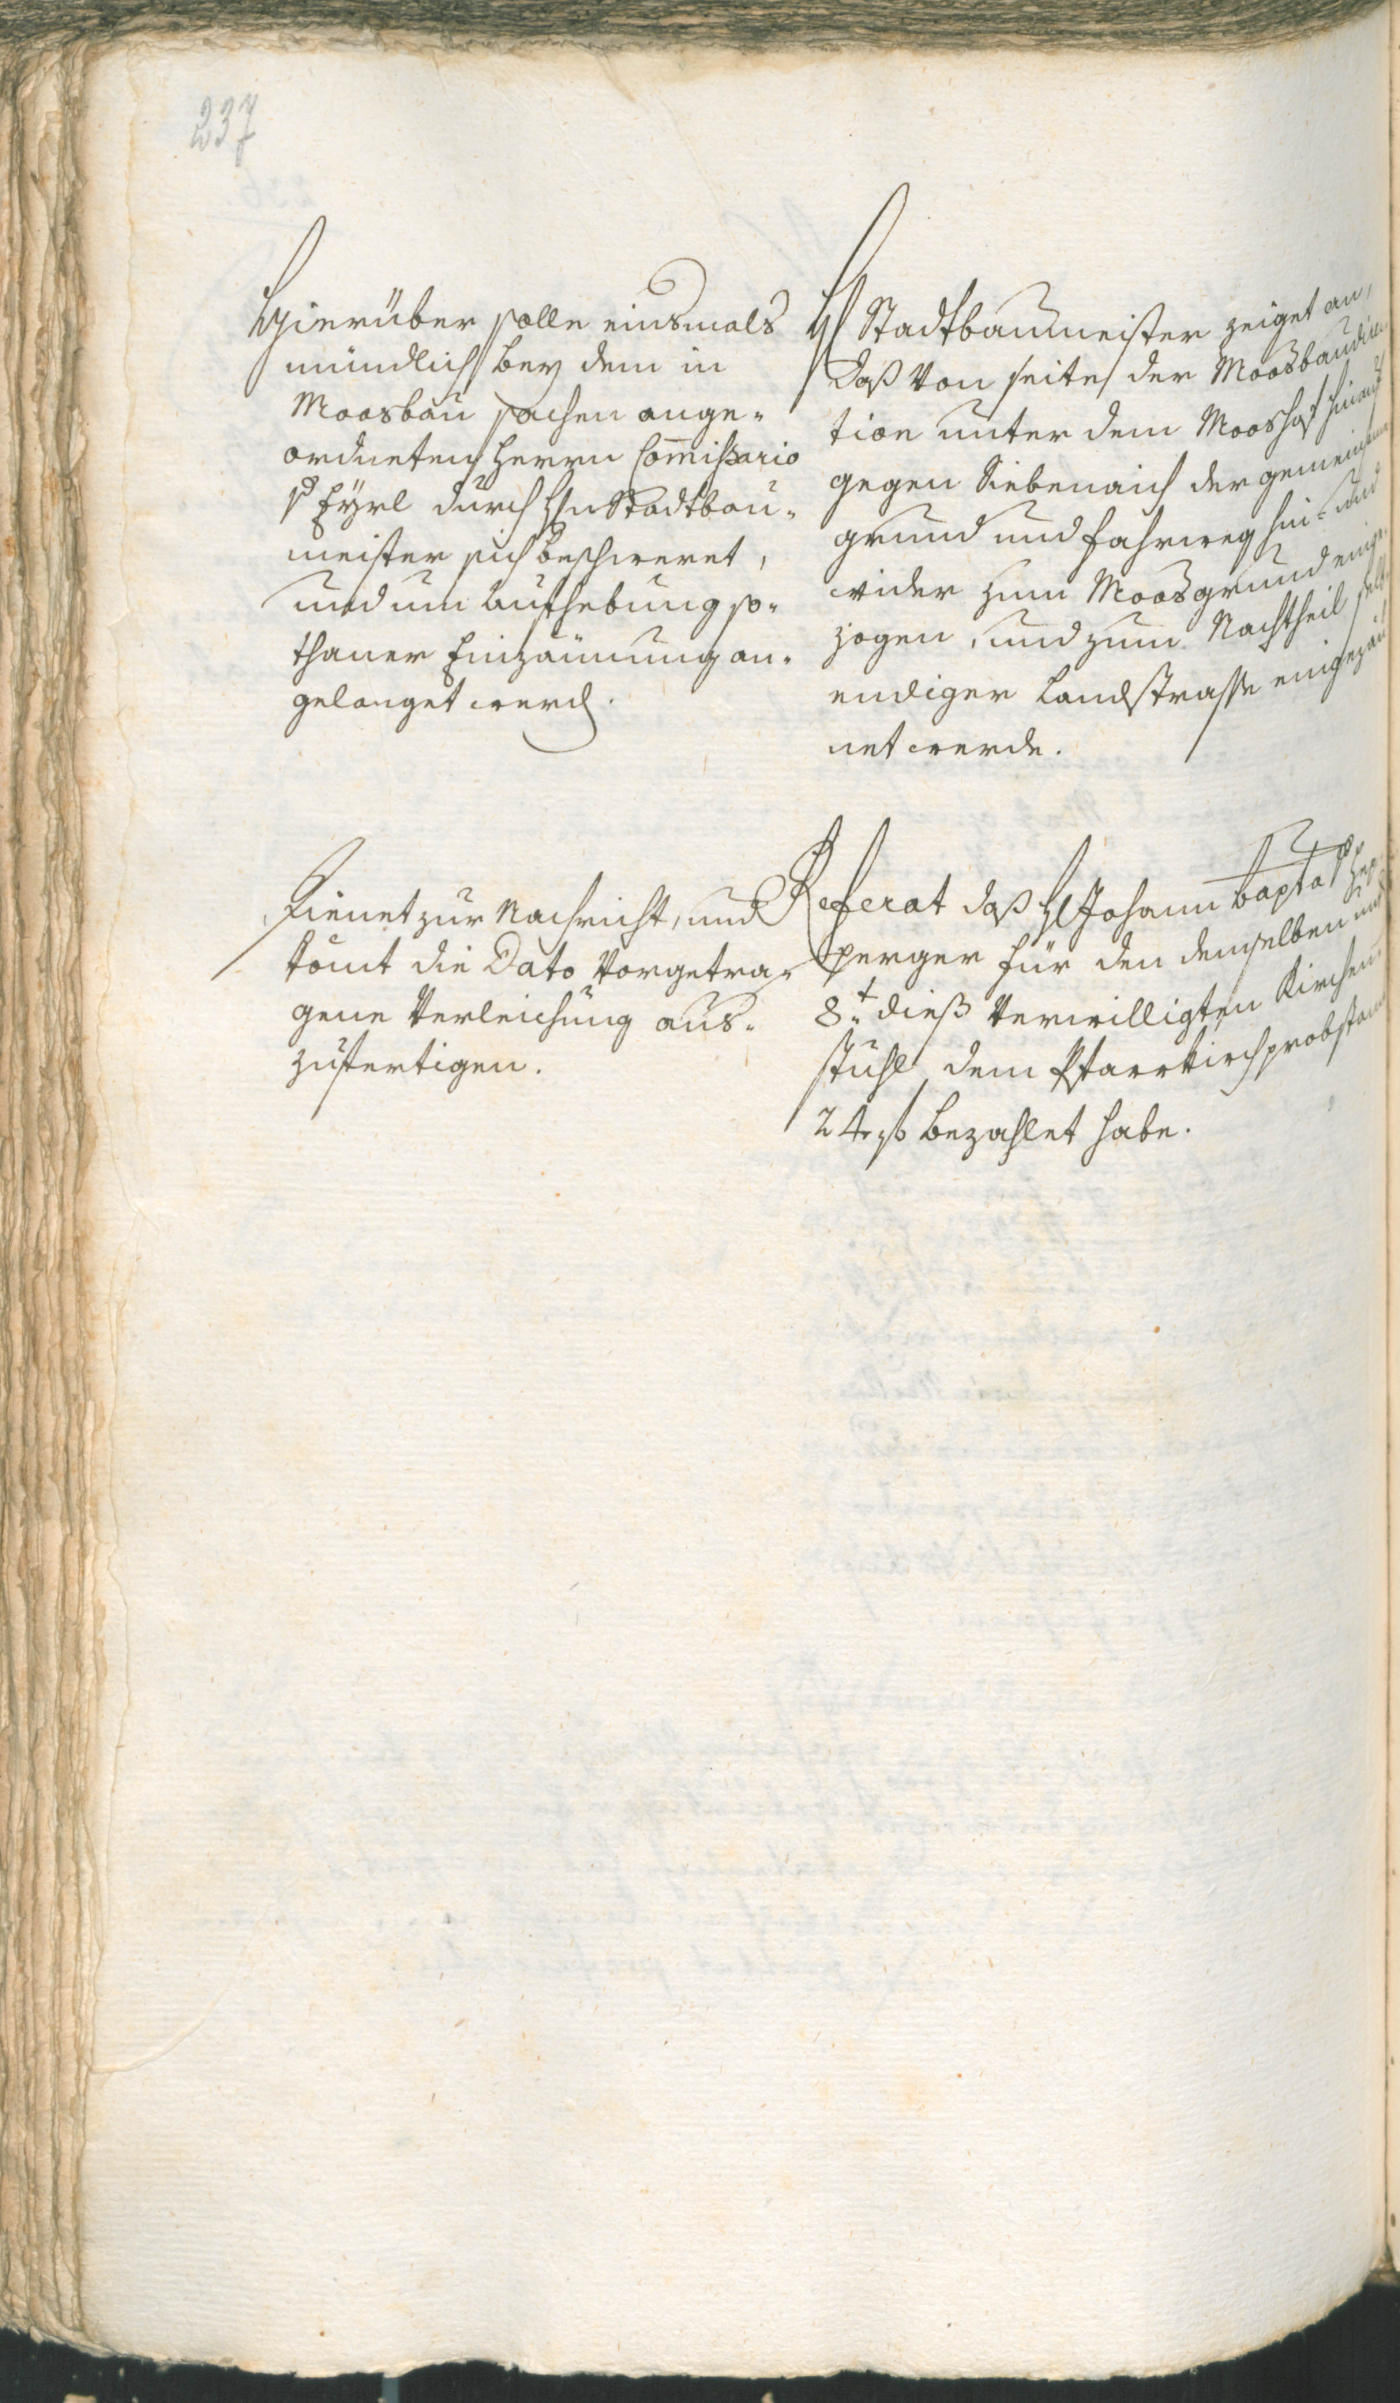 237
Hierüber solle einsmals
mündlich bey dem in
Moosbau sachen ange-
ordneten Herrn Commissario
v Eÿrl durch Hn Stadtbau-
meister sich beschweret,
und um Aufhebung so-
thaner Einzäunung an-
gelanget werden.
H Stadtbaumeister zeiget an,
daß von seiten der Moosbaudirec
tion unter dem Mooshof hinauf
gegen Siebenaich der gemeinsame
grund und fahrweg hin- und
wider zum Moosgrund einge-
zogen, und zum Nachtheil selb
endiger Landstrasse eingezäu
net werde.
Dienet zur Nachricht, und
komt die Dato vorgetra-
gene Verleichung aus-
zufertigen.
Referat daß H Johann bapta
perger für den demselben
8.t dieß verwilligten Kirchen-
stuhl dem Pfarrkirchprobstamt
24 f bezahlet habe.